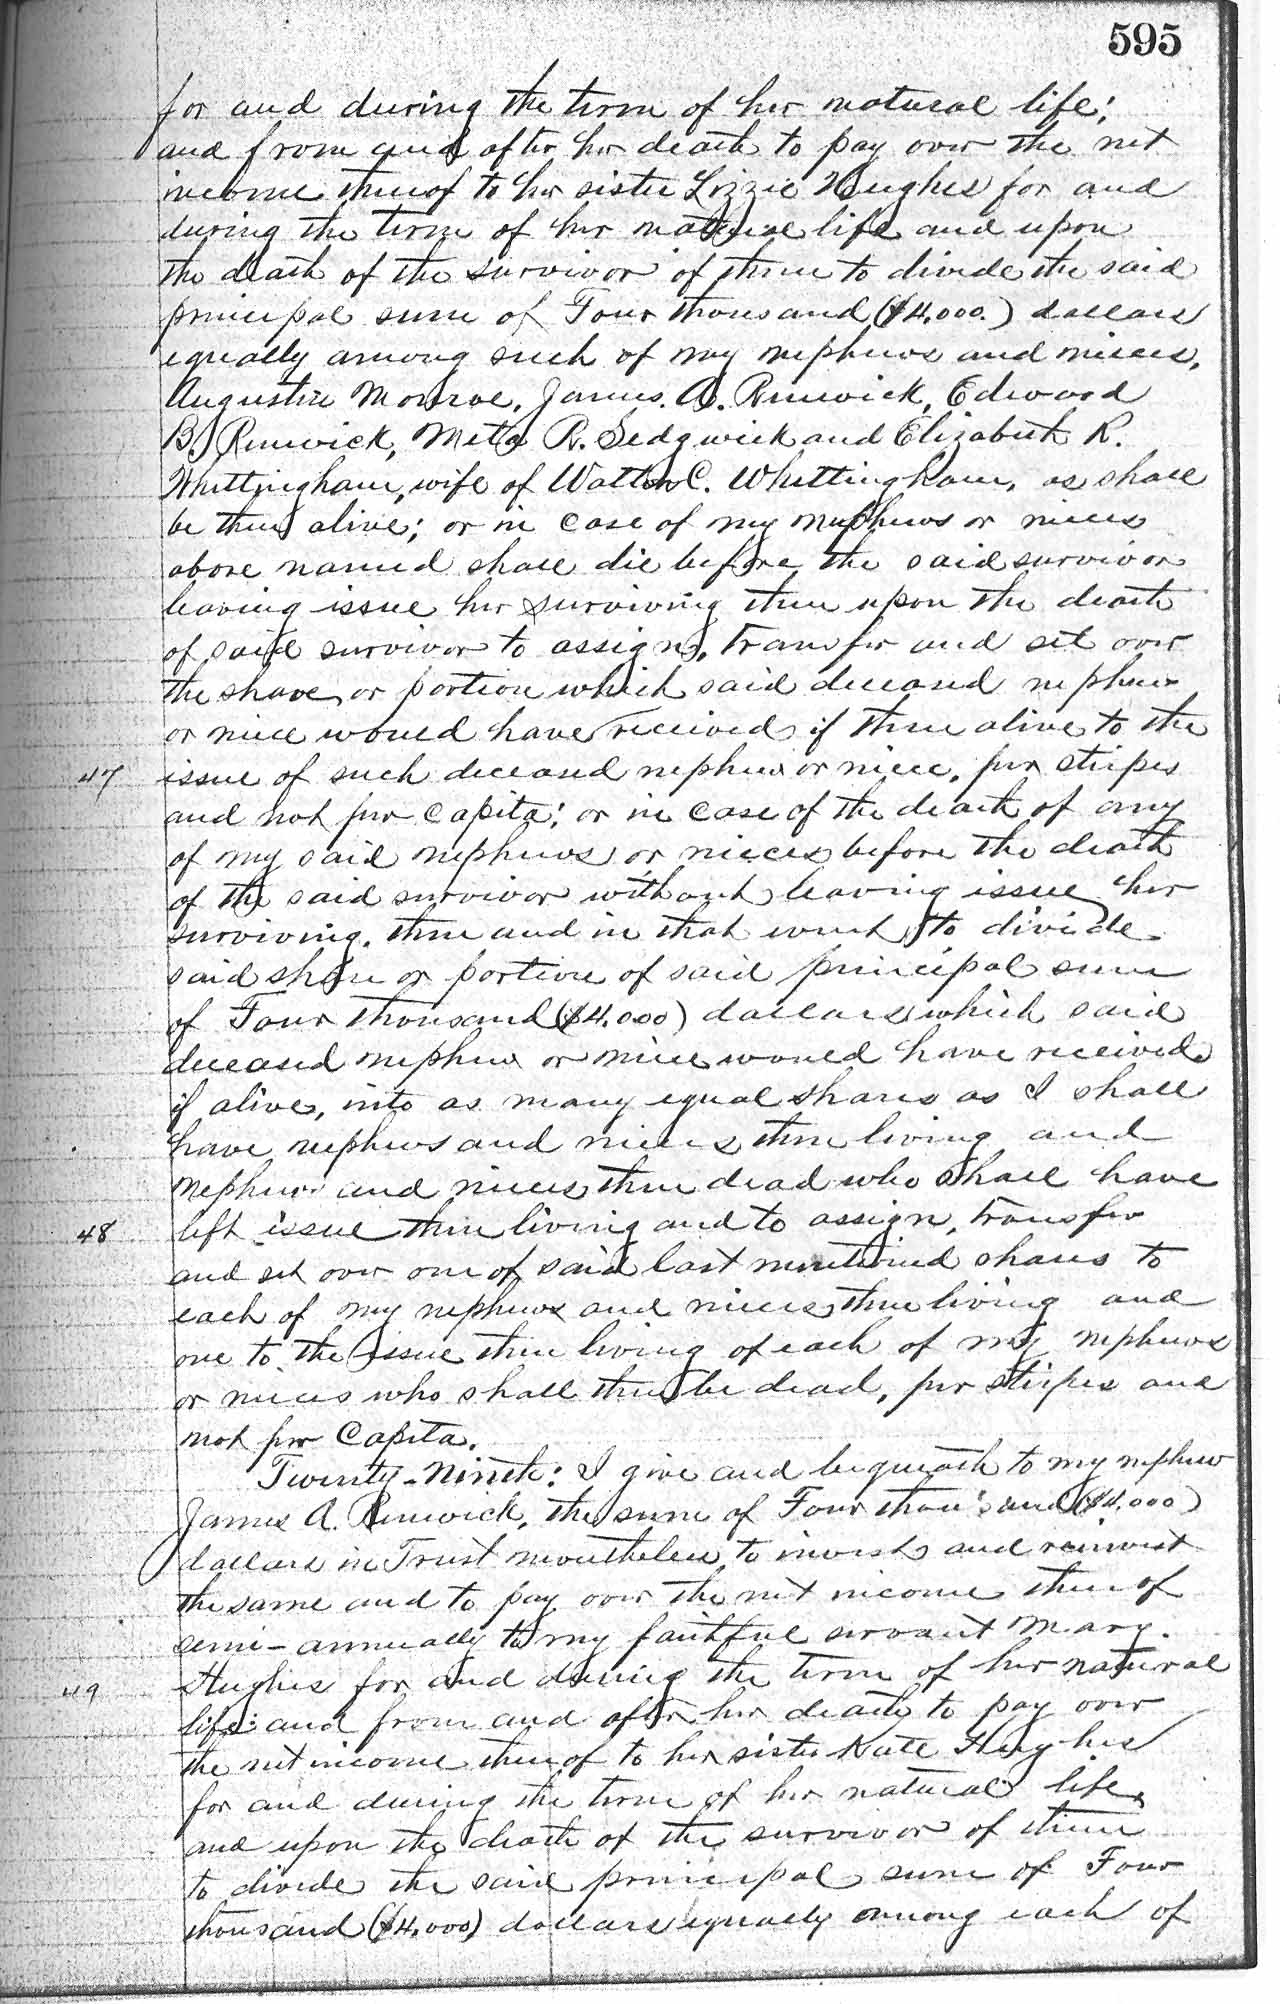 595
for and during the term of her natural life;
and from and after her death to pay over the net
income thereof to her sister Lizzie Hughes for and
during the term of her natural life and upon
the death of the survivor of them to divide the said
principal sum of Four thousand ($4,000.) dollars
equally among such of my nephews and nieces,
Augustin Monroe, James A. Renwick, Edward
B. Renwick, Meta R. Sedgwick and Elizabeth R.
Whittingham, wife of Walter C. Whittingham, as shall
be then alive; or in case of my nephews or nieces
above named shall die before the said survivor
leaving issue her surviving then upon the death
of said survivor to assign, transfer and set over
the share or portion which said deceased nephew
or niece would have received if then alive to the
47 issue of such deceased nephew or niece, per stirpes
and not per capita; or in case of the death of any
of my said nephews or nieces before the death
of the said survivor without leaving issue her
surviving, then and in that event to divide
said share or portion of said principal sum
of Four thousand ($4,000) dollars which said
deceased nephew or niece would have received
if alive, into as many equal shares as I shall
have nephews and nieces then living and
nephews and nieces then dead who shall have
48 left issue then living and to assign, transfer
and set over one of said last mentioned shares to
each of my nephews and nieces then living and
one to the issue then living of each of my nephews
or nieces who shall then be dead, per stirpes and
not per Capita.
Twenty-Ninth: I give and bequeath to my nephew
James A. Renwick, the sum of Four thousand ($4,000)
dollars in Trust nevertheless, to invest and reinvest
the same and to pay over the net income thereof
semi-annually to my faithful servant Mary.
49 Hughes for and during the term of her natural
life: and from and after her death to pay over
the net income thereof to her sister Kate Hughes
for and during the term of her natural life,
and upon the death of the survivor of them
to divide the said principal sum of Four
thousand ($4,000) dollars equally among each of